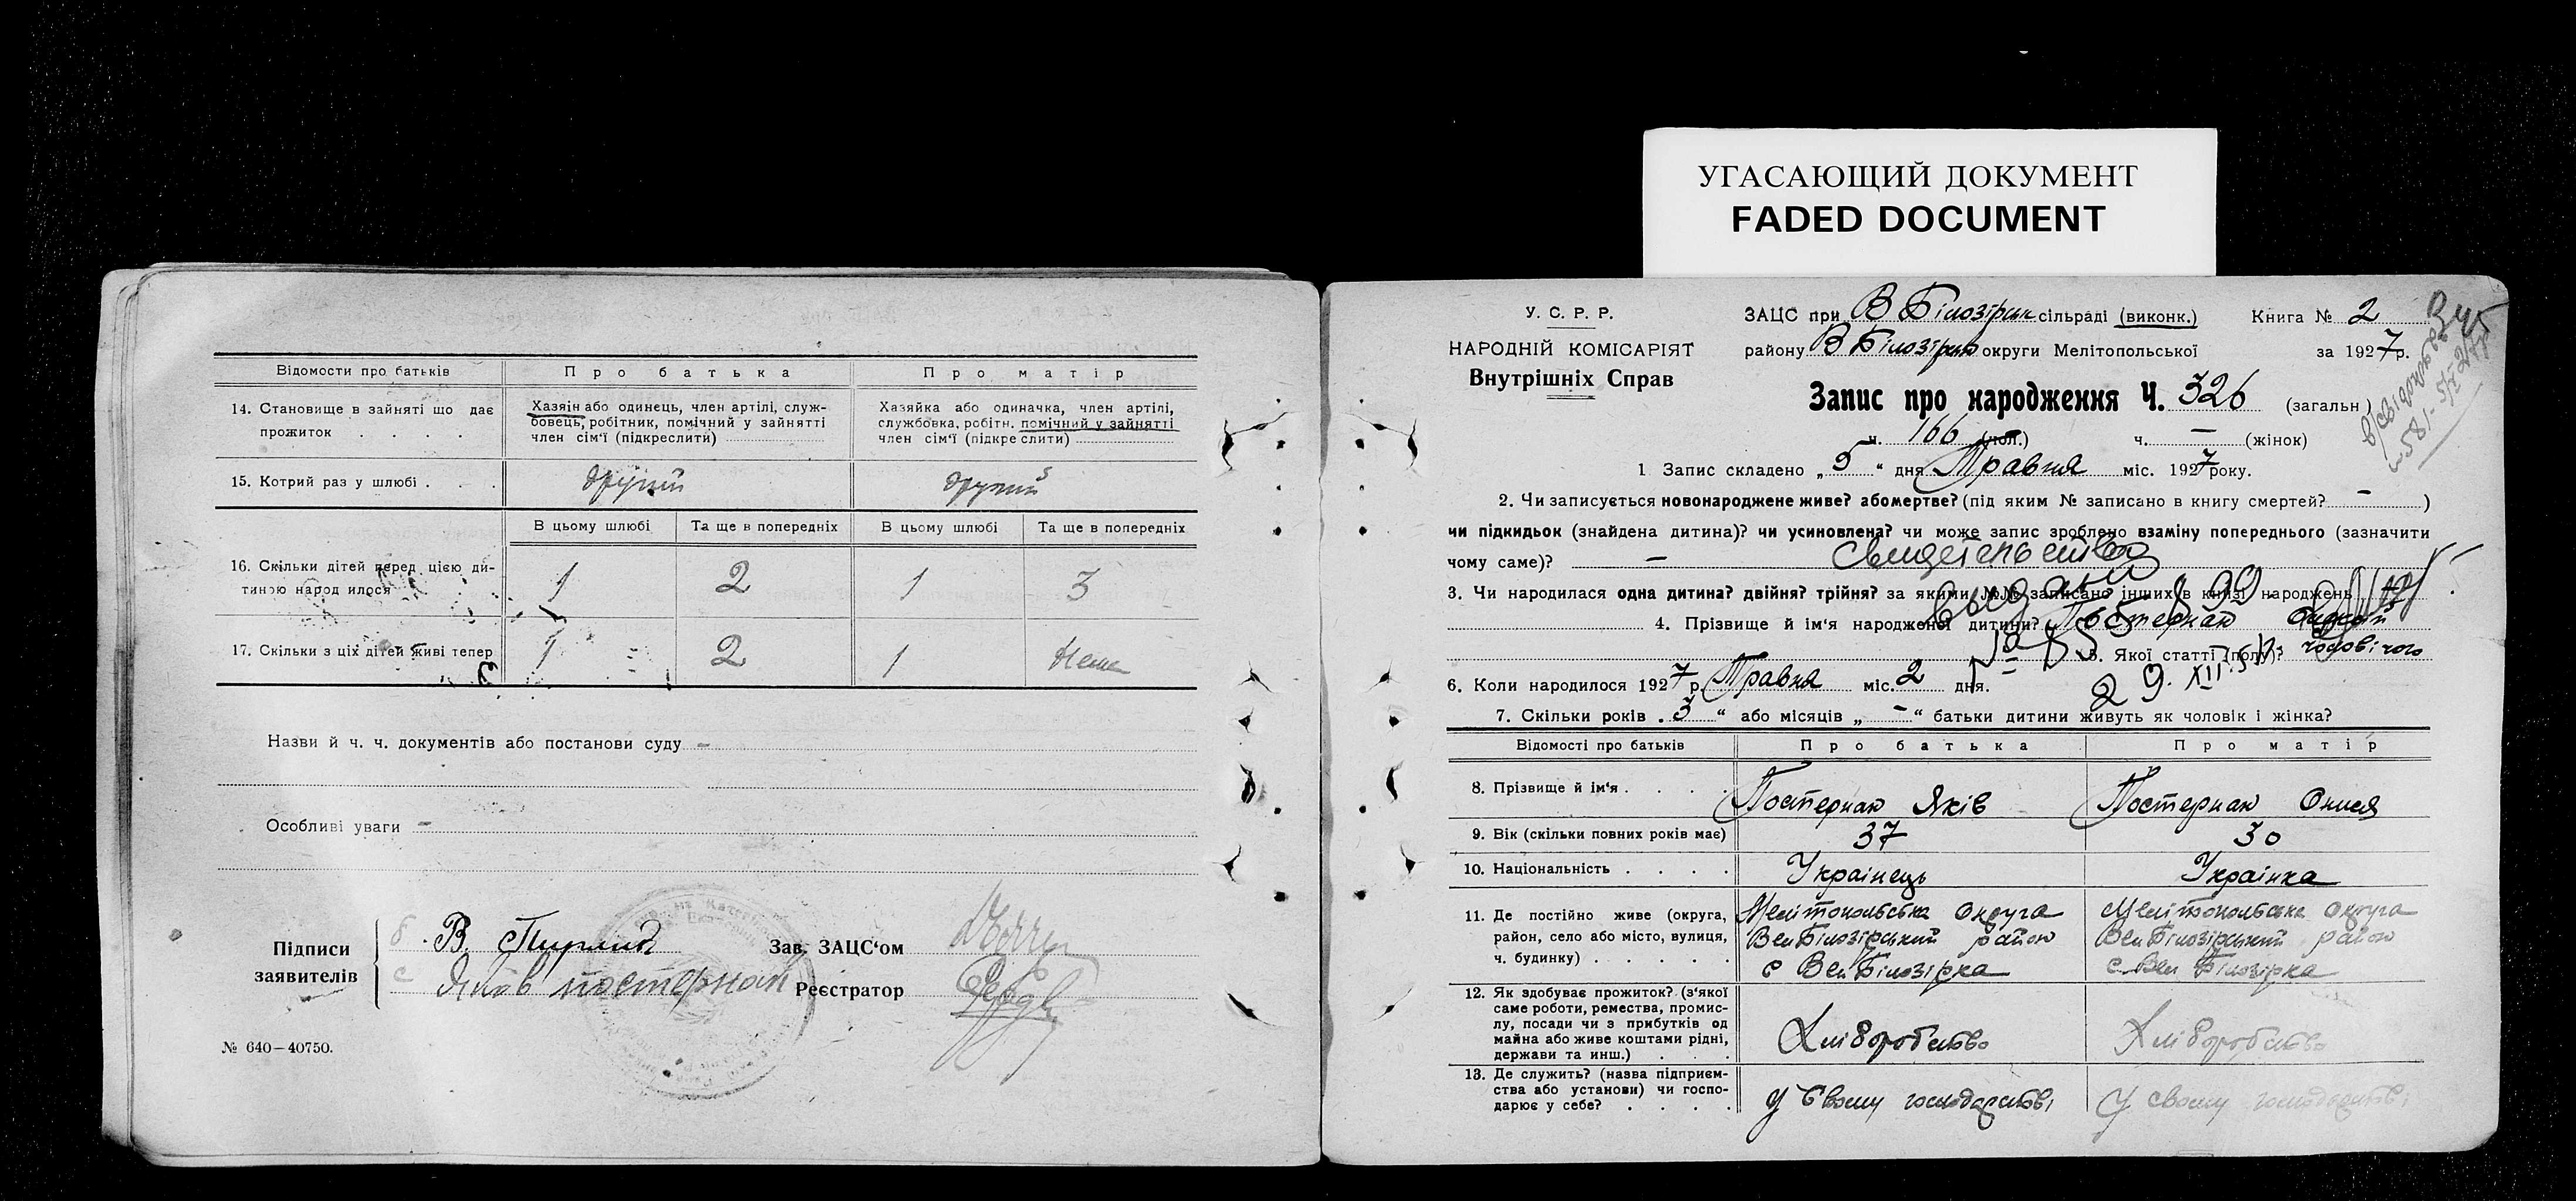 УГАСАЮЩИЙ ДОКУМЕНТ
FADED DOCUMENT
Відомости про батьків
Про батька
Про матір
14. Становище в зайняті що дає прожиток . . . .
Хазяїн або одинець, член артілі, служ-
бовець, робітник, помічний у зайнятті
член сім'ї (підкреслити)
Хазяйка або одиначка, член артілі,
службовка, робітн. помічний у зайнятті
член сім'ї (підкреслити)
15. Котрий раз у шлюбі . . .
другий
другий
В цьому шлюбі
Та ще в попередніх
В цьому шлюбі
Та ще в попередніх
16. Скільки дітей перед цією ди-
тиною народилося
1
2
1
3
17. Скільки з ціх дітей живі тепер
1
2
1
Неме
Назви й ч. ч. документів або постанови суду –
Особливі уваги –
Підписи
заявителів
В.
Яков постернак
Зав. ЗАЦС'ом
Реєстратор
№ 640—40750.
У. С. Р. Р.
НАРОДНІЙ КОМІСАРІЯТ
Внутрішніх Справ
ЗАЦС при В Білозірськ сільраді (виконк.)
Книга № 2
району В Білозірськ округи Мелітопольської
за 1927 р.
Запис про народження Ч. 326 (загальн.)
ч. 166 (чол.) ч. – (жінок)
1 Запис складено „5“ дня Травня міс. 1927 року.
2. Чи записується новонароджене живе? або мертве? (під яким № записано в книгу смертей? – )
чи підкидьок (знайдена дитина)? чи усиновлена? чи може запис зроблено взаміну попереднього (зазначити
чому саме)? –
3. Чи народилася одна дитина? двійня? трійня? за якими №№ записано інших в книзі народжень
4. Прізвище й ім'я народженої дитини? Постернак
5. Якої статті (полу)? чоловічого
6. Коли народилося 1927 р. Травня міс. 2 дня.
29.XII.
7. Скільки років „3“ або місяців „–“ батьки дитини живуть як чоловік і жінка?
Відомості про батьків
Про батька
Про матір
8. Прізвище й ім'я . . . .
Постернак Яків
Постернак Онися
9. Вік (скільки повних років має)
37
30
10. Національність . . . .
Українець
Українка
11. Де постійно живе (округа,
район, село або місто, вулиця,
ч. будинку) . . . . .
Мелітопольська Округа
Вел Білозірський район
с Вел Білозірка
Мелітопольська Округа
Вел Білозірський район
с Вел Білозірка
12. Як здобуває прожиток? (з'якої
саме роботи, ремества, промис-
лу, посади чи з прибутків од
майна або живе коштами рідні,
держави та инш.) . . .
Хліборобство
Хліборобство
13. Де служить? (назва підприєм-
ства або установи) чи госпо-
дарює у себе? . . . .
у Своєму господарстві
У своєму господарстві